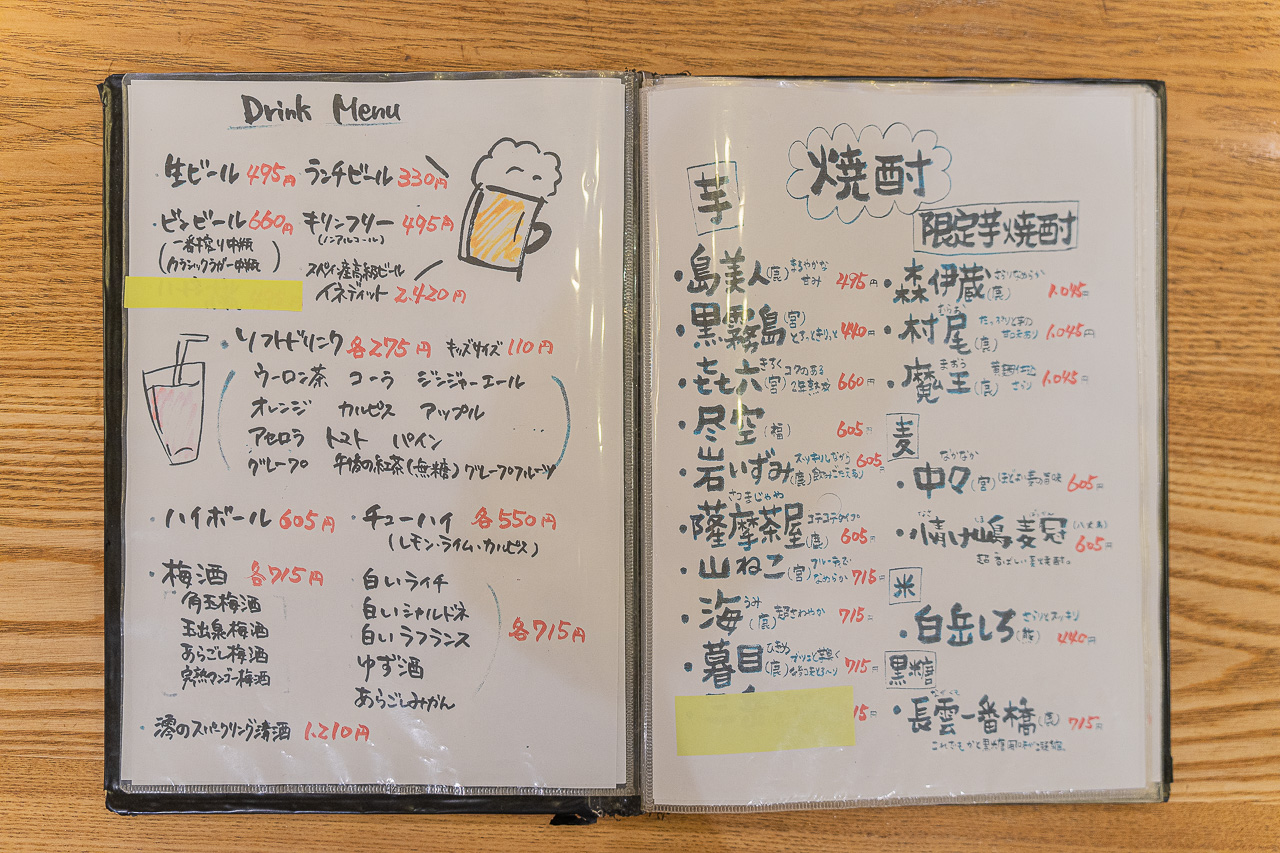 Drink Menu
・生ビール 495円 ランチビール 330円
・ビンビール 660円 キリンフリー 495円
(一番搾り中瓶 (ノンアルコール)
クラシックラガー中瓶)
スペイン産高級ビール
イネディット 2,420円
・ソフトドリンク 各275円 キッズサイズ 110円
ウーロン茶 コーラ ジンジャーエール
オレンジ カルピス アップル
アセロラ トマト パイン
グレープ 午後の紅茶(無糖) グレープフルーツ
・ハイボール 605円 ・チューハイ 各550円
(レモン・ライム・カルピス)
・梅酒 各715円
角玉梅酒
玉出泉梅酒
あらごし梅酒
完熟マンゴー梅酒
・白いライチ
白いシャルドネ
白いラフランス
ゆず酒
あらごしみかん
各715円
・澪のスパークリング清酒 1,210円
焼酎
芋
・島美人(鹿) まろやかな甘み 495円
・黒霧島(宮) とろっときりっと 440円
・㐂六(宮) きろく コクのある2年熟成 660円
・尽空(福) 605円
・岩いずみ(鹿) スッキリしながら飲みごたえあり 605円
さつまじゃや
・薩摩茶屋(鹿) コテコテタイプ 605円
・山ねこ(宮) フルーティでなめらか 715円
・海(鹿) うみ 超さわやか 715円
・暮目(鹿) 715円
15円
限定芋焼酎
・森伊蔵(鹿) さらりなめらか 1,045円
むらお
・村尾(鹿) 1,045円
まおう
・魔王(鹿) 1,045円
麦
なかなか
・中々(宮) 605円
・情け嶋麦冠 (八丈島) 605円
超香ばしい麦焼酎。
米
・白岳しろ(熊) さらりとスッキリ 440円
黒糖
・長雲一番橋(鹿) 715円